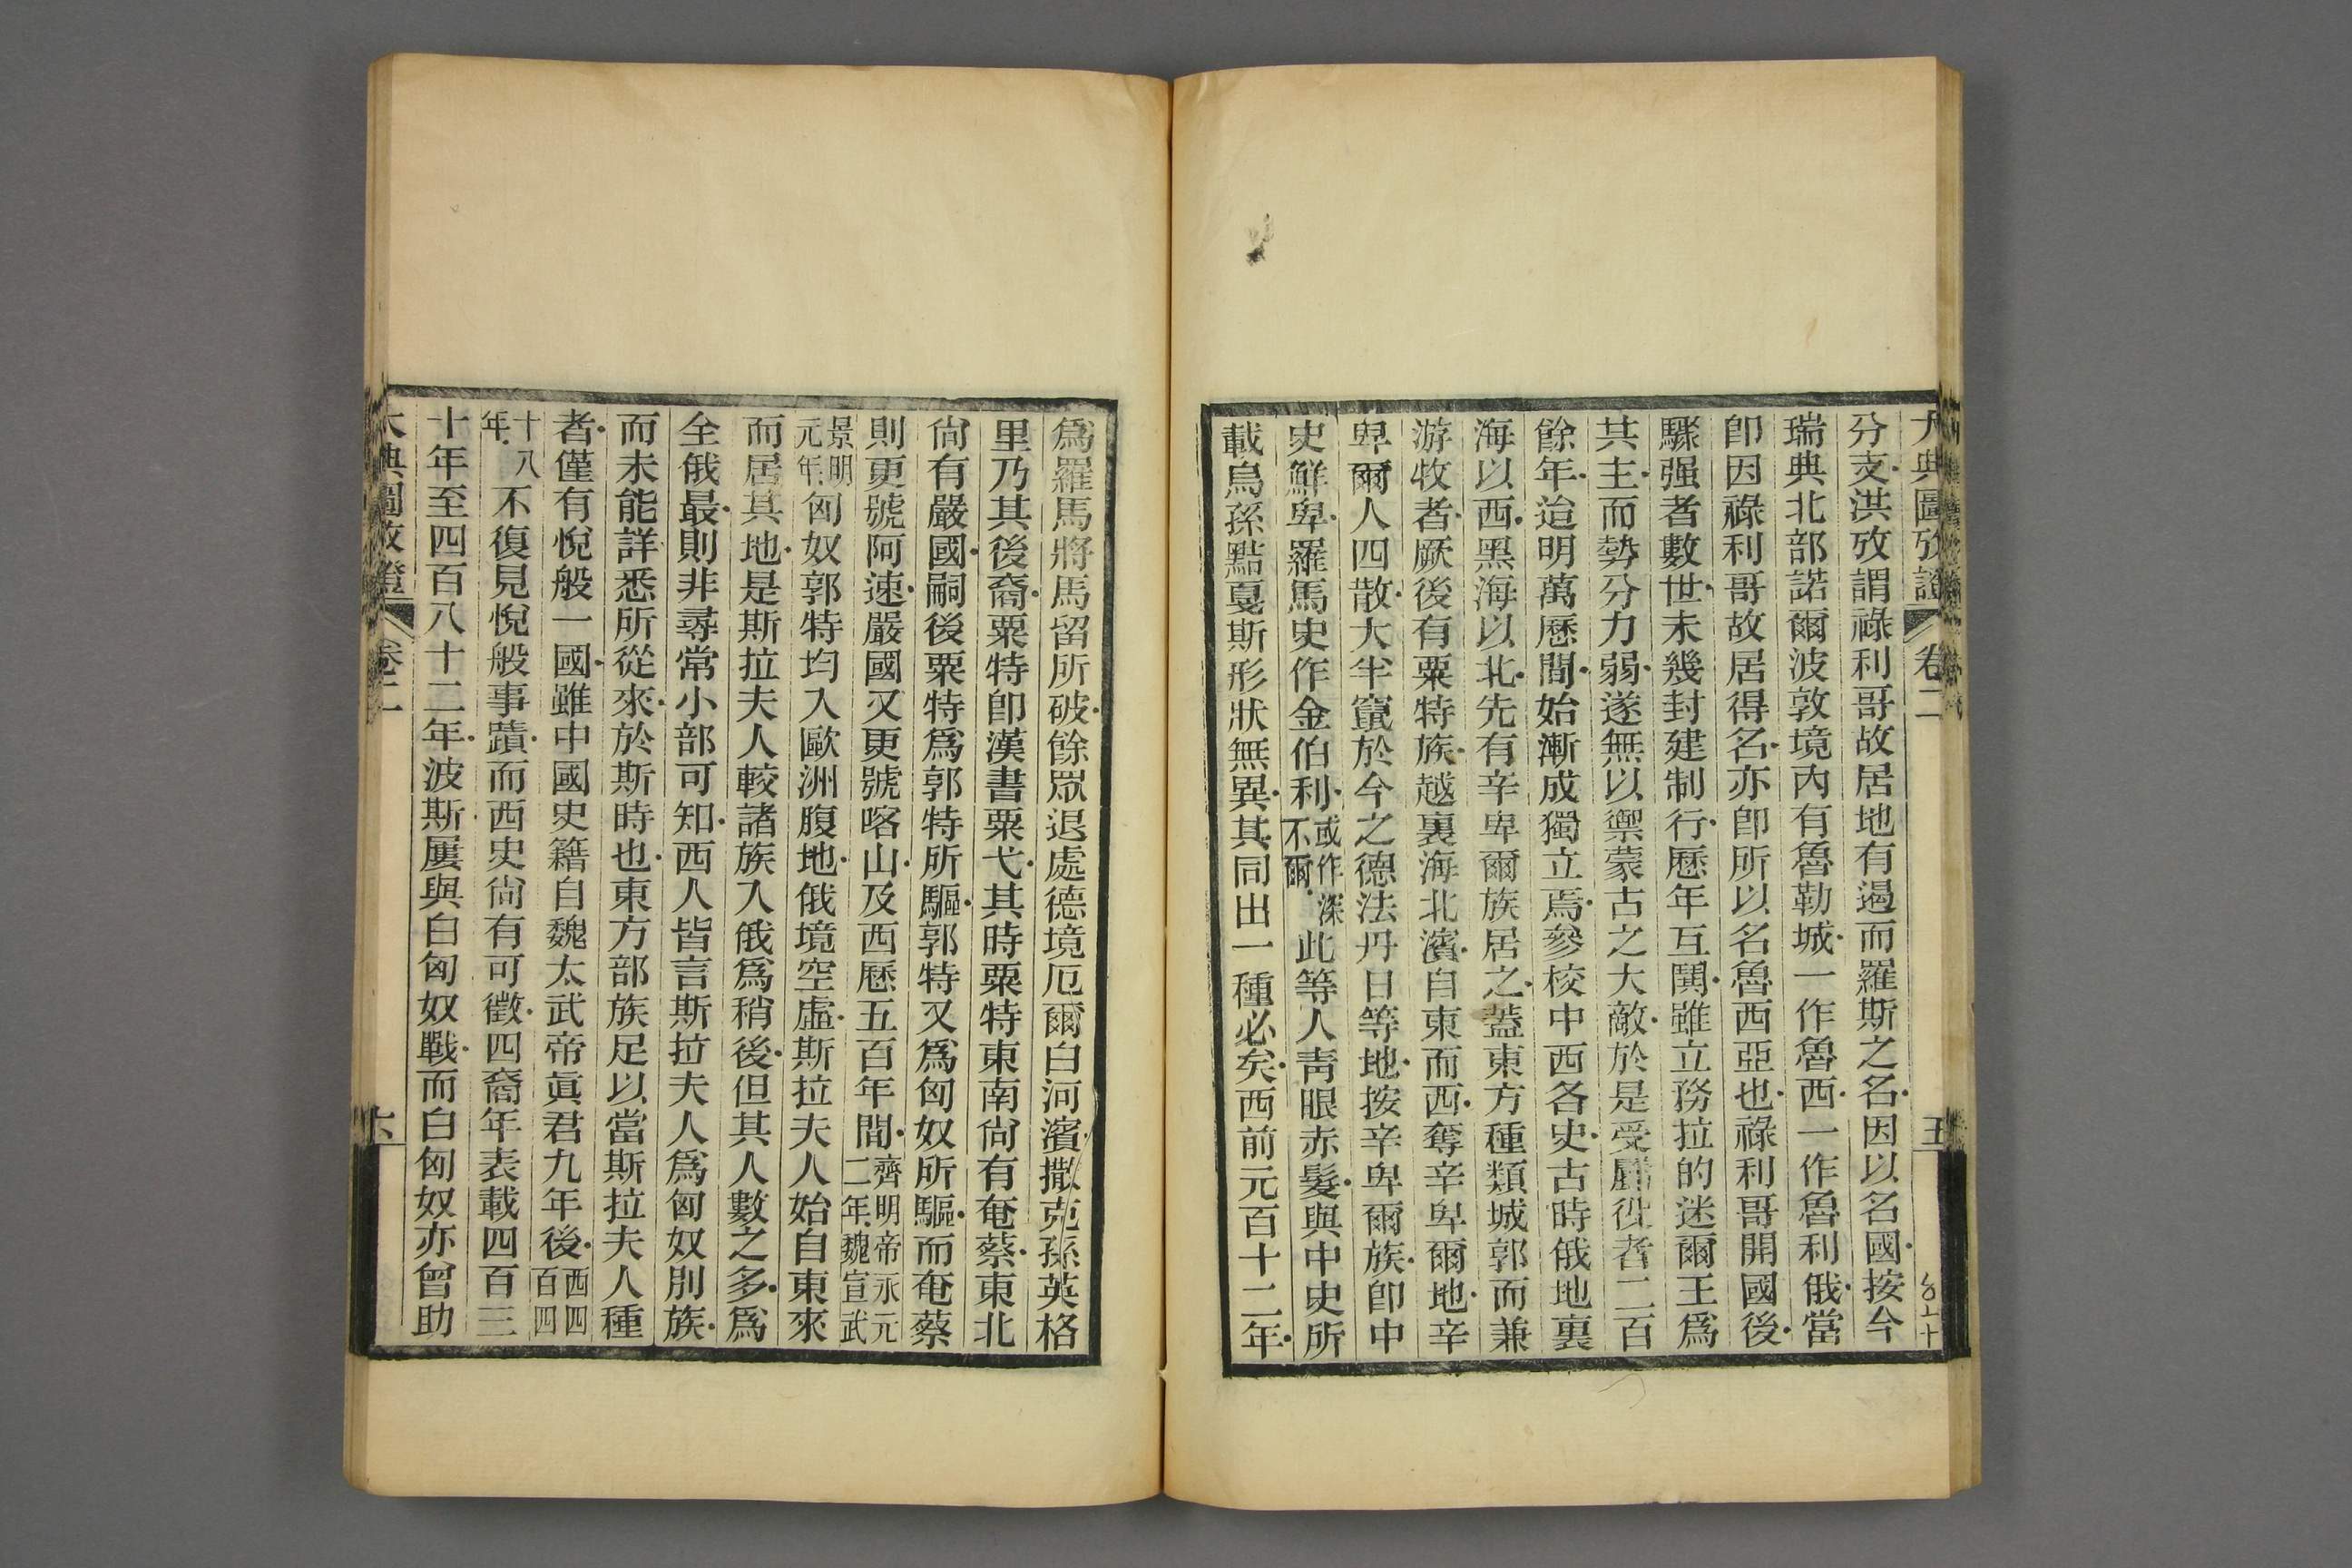 大典圖攷證 卷二 五
分支洪攷謂祿利哥故居地有過而羅斯之名因以名國按今
瑞典北部諾爾波敦境內有魯勒城一作魯西一作魯利俄當
卽因祿利哥故居得名亦卽所以名魯西亞也祿利哥開國後
驟强者數世未幾封建制行歷年互鬨雖立務拉的迷爾王爲
其主而勢分力弱遂無以禦蒙古之大敵於是受羈役者二百
餘年迨明萬歷間始漸成獨立焉參校中西各史古時俄地裏
海以西黑海以北先有辛卑爾族居之葢東方種類城郭而兼
游牧者厥後有粟特族越裏海北濱自東而西奪辛卑爾地辛
卑爾人四散大半竄於今之德法丹日等地按辛卑爾族卽中
史鮮卑羅馬史作金伯利或作深不爾此等人靑眼赤髮與中史所
載烏孫黠戛斯形狀無異其同出一種必矣西前元百十二年
爲羅馬將馬留所破餘眾退處德境厄爾白河濱撒克孫英格
里乃其後裔粟特卽漢書粟弋其時粟特東南尙有奄蔡東北
尙有嚴國嗣後粟特爲郭特所驅郭特又爲匈奴所驅而奄蔡
則更號阿速嚴國又更號喀山及西歷五百年間齊明帝永元二年魏宣武
景明元年匈奴郭特均入歐洲腹地俄境空虛斯拉夫人始自東來
而居其地是斯拉夫人較諸族入俄爲稍後但其人數之多爲
全俄最則非尋常小部可知西人皆言斯拉夫人爲匈奴別族
而未能詳悉所從來於斯時也東方部族足以當斯拉夫人種
者僅有悅般一國雖中國史籍自魏太武帝眞君九年後西四百四
十八年不復見悅般事蹟而西史尙有可徵四裔年表載四百三
十年至四百八十二年波斯屢與白匈奴戰而白匈奴亦曾助
大典圖攷證 卷二 六